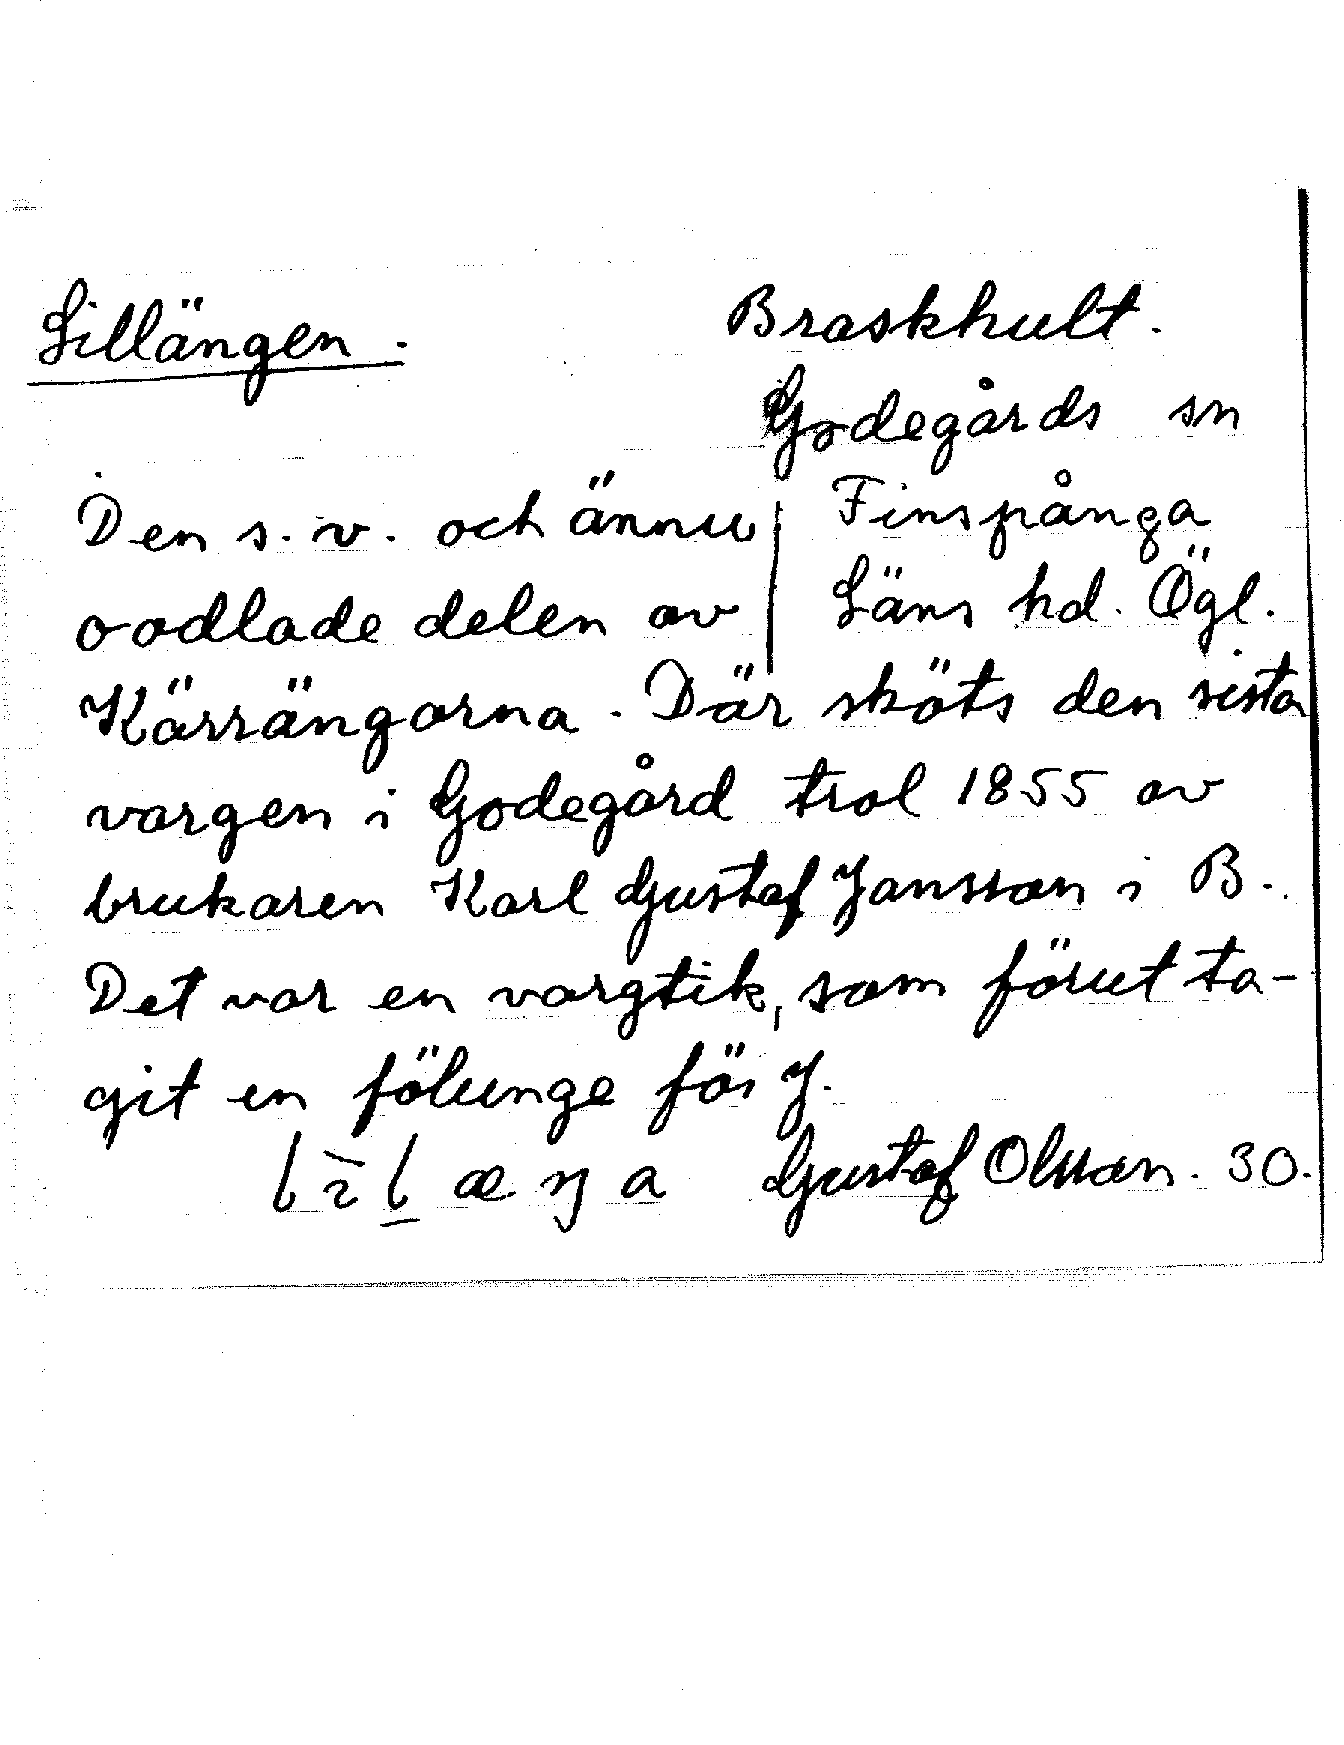 Lillängen.
Braskhult.
Godegårds sn
Finspånga
Läns hd. Ögl.
Den s.v. och ännu
oodlade delen av
Kärrängarna. Där sköts den sista
vargen i Godegård trol 1855 av
brukaren Karl Gustaf Jansson i B.
Det var en vargtik, som förut ta-
git en fölunge för J.
Gustaf Olsson. 30.